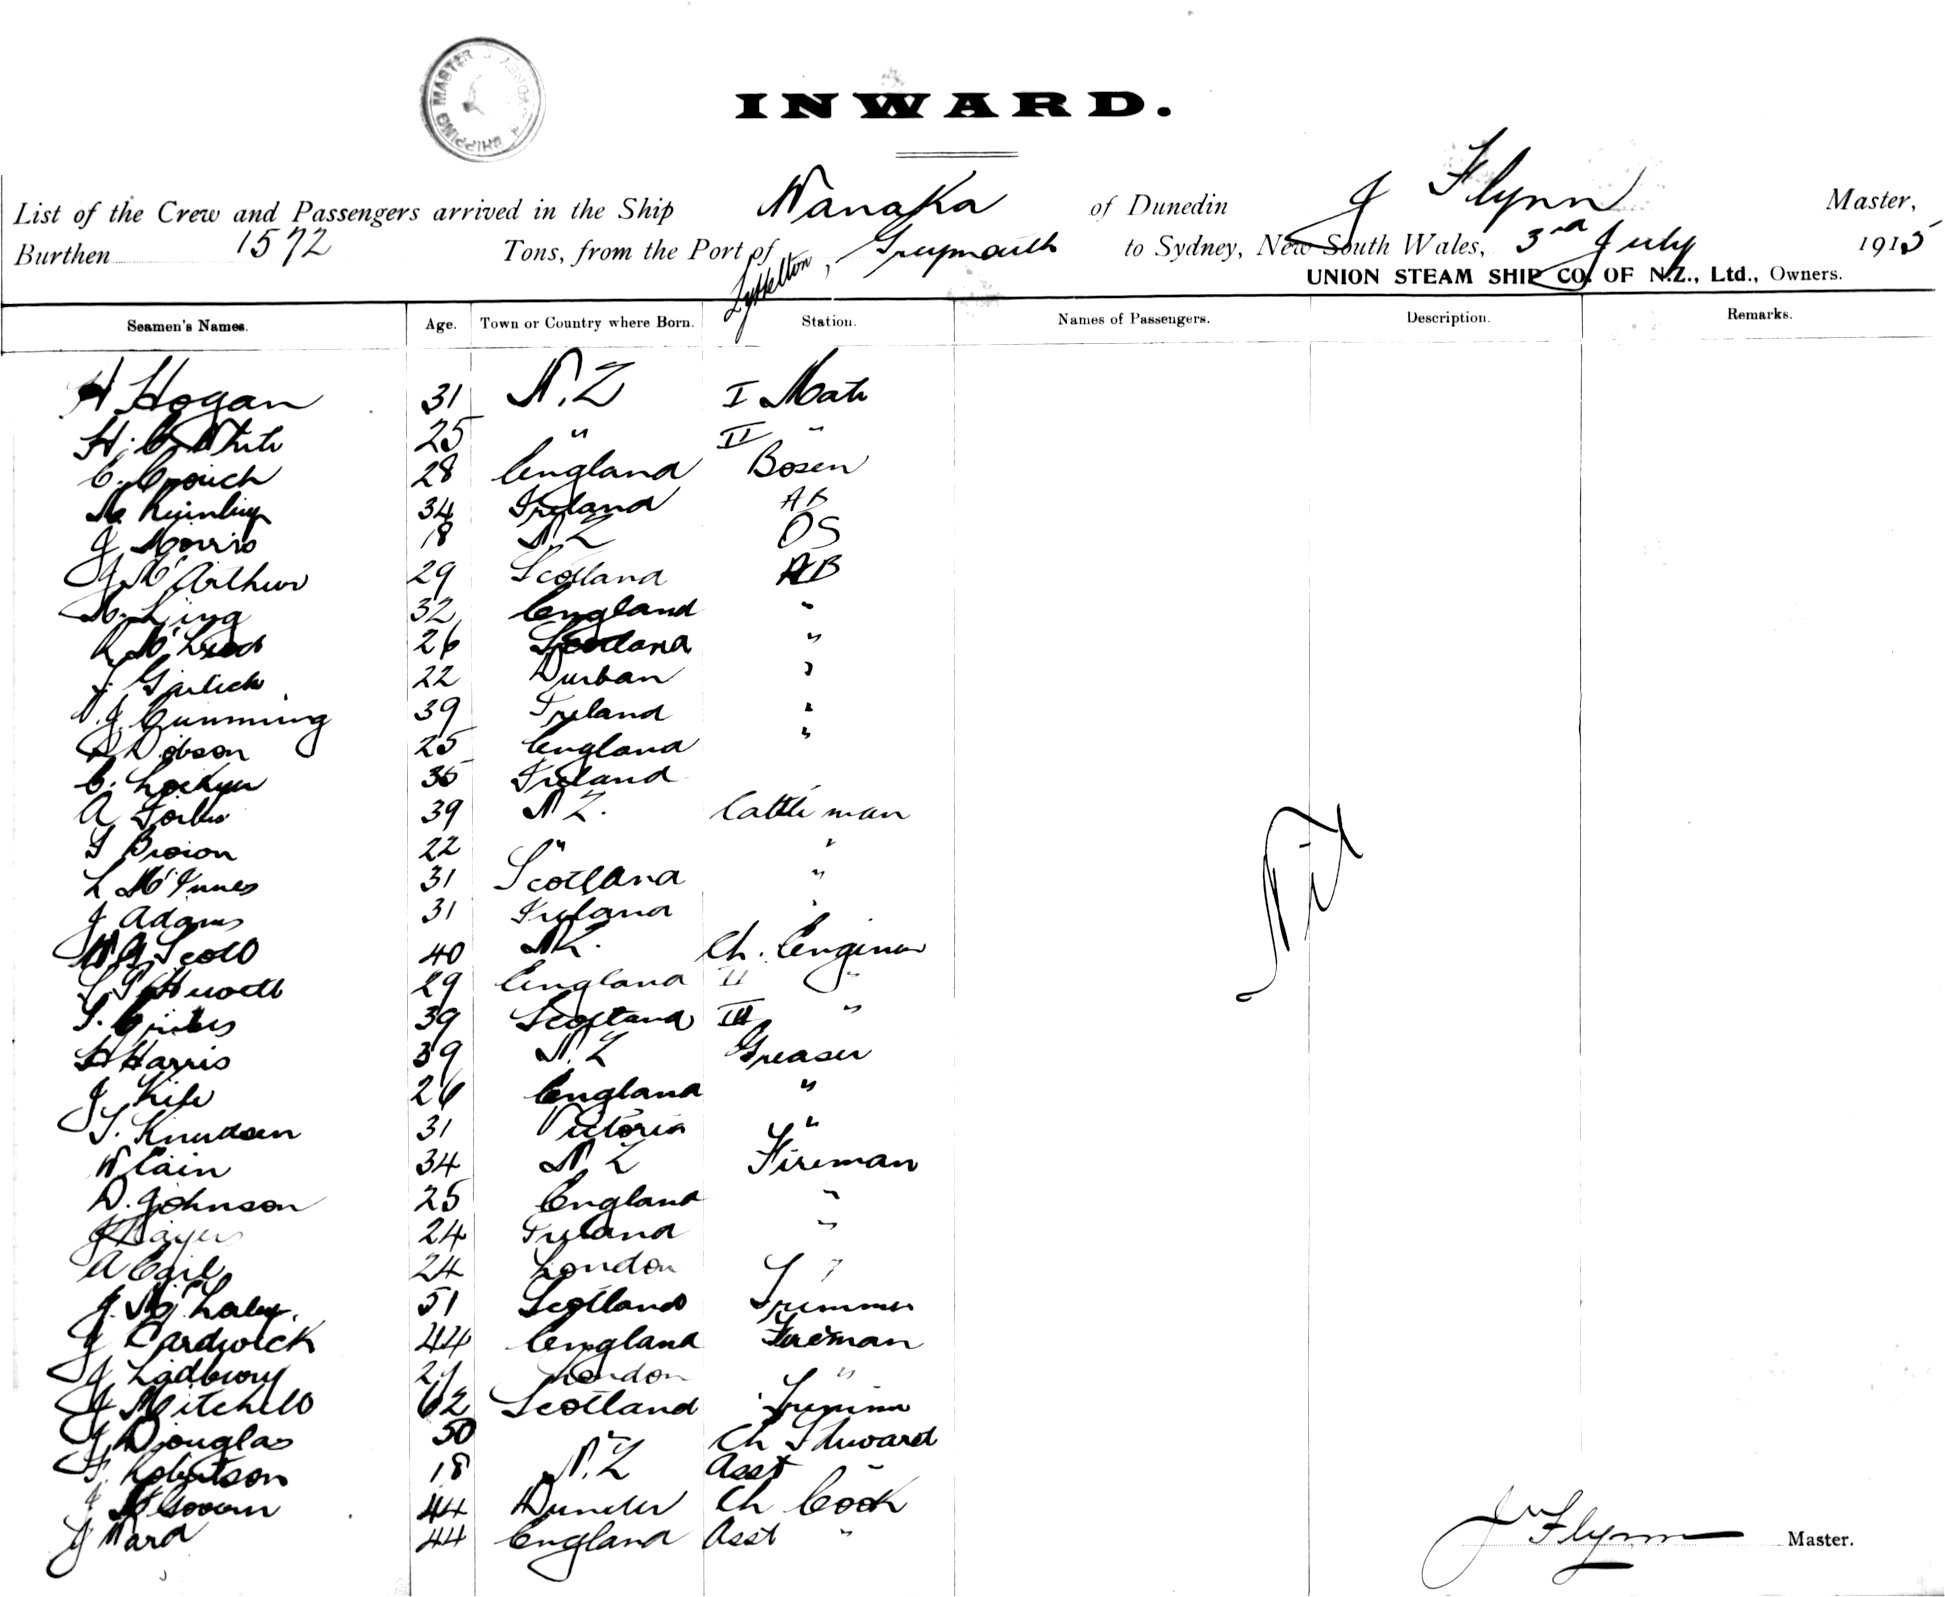 SHIPPING MASTER SYDNEY
INWARD.
List of the Crew and Passengers arrived in the Ship Wanaka of Dunedin J Flynn Master,
Burthen 1572 Tons, from the Port of Lyttelton, Greymouth to Sydney, New South Wales, 3rd July 1915
UNION STEAM SHIP CO. OF N.Z., Ltd., Owners.
Seamen's Names. Age. Town or Country where Born. Station. Names of Passengers. Description. Remarks.
H Hogan 31 N.Z I Mate
H. C. White 25 " II "
C. Crouch 28 England Bosen
34 Ireland AB
J Morris 18 N.Z OS
J McArthur 29 Scotland AB
King 32 England "
McLeod 26 Scotland "
J. Garlick 22 Durban "
J. Cumming 39 Ireland "
Dobson 25 England "
C. Lockyer 35 Ireland
A Forbes 39 N Z. Cattle man
Brown 22 " "
L McInnes 31 Scotland "
J Adams 31 Ireland "
Scott 40 N Z. Ch. Engineer
Hewett 29 England II "
39 Scotland III "
H Harris 39 N.Z Greaser
J 26 England "
T. Knudsen 31 Victoria "
W Cain 34 N Z Fireman
D. Johnson 25 England "
24 Ireland "
A Cail 24 London "
J. 51 Scotland Trimmer
J Cardwick 44 England Fireman
J Ladbury London "
J Mitchell 62 Scotland Trimmer
J Douglas 50 " Ch Steward
F. Robertson 18 N.Z Asst "
J McGovern 44 Dundee Ch Cook
J Ward 44 England Asst "
Nil
J Flynn Master.